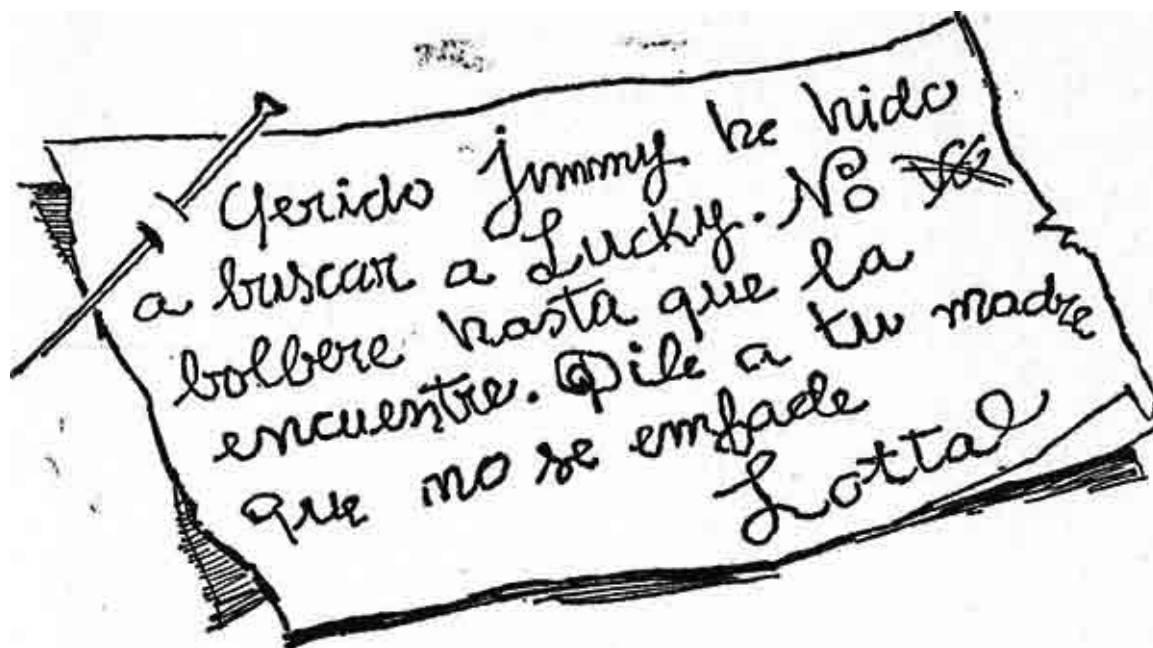 Qerido Jimmy he hido
a buscar a Lucky. No
bolbere hasta que la
encuentre. Dile a tu madre
que no se emfade
Lotta